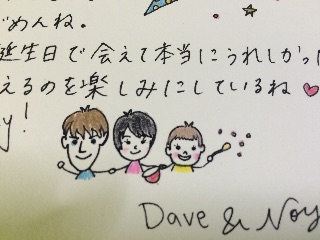 ごめんね。
誕生日で会えて本当にうれしかった
えるのを楽しみにしているね♡
y!
Dave & Noy